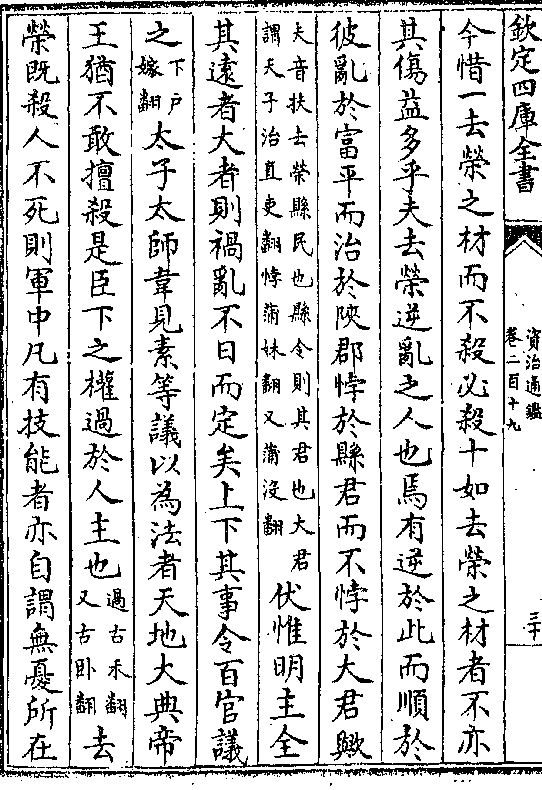 欽定四庫全書
資治通鑑
卷二百十九
三十
今惜一去榮之材而不殺必殺十如去榮之材者不亦
其傷益多乎夫去榮逆亂之人也焉有逆於此而順於
彼亂於富平而治於陝郡悖於縣君而不悖於大君歟
夫音扶去榮縣民也縣令則其君也大君
謂天子治直吏翻悖蒲妹翻又蒲沒翻
伏惟明主全
其遠者大者則禍亂不日而定矣上下其事令百官議
之
下戶
嫁翻
太子太師韋見素等議以為法者天地大典帝
王猶不敢擅殺是臣下之權過於人主也
過古禾翻
又古卧翻
去
榮既殺人不死則軍中凡有技能者亦自謂無憂所在